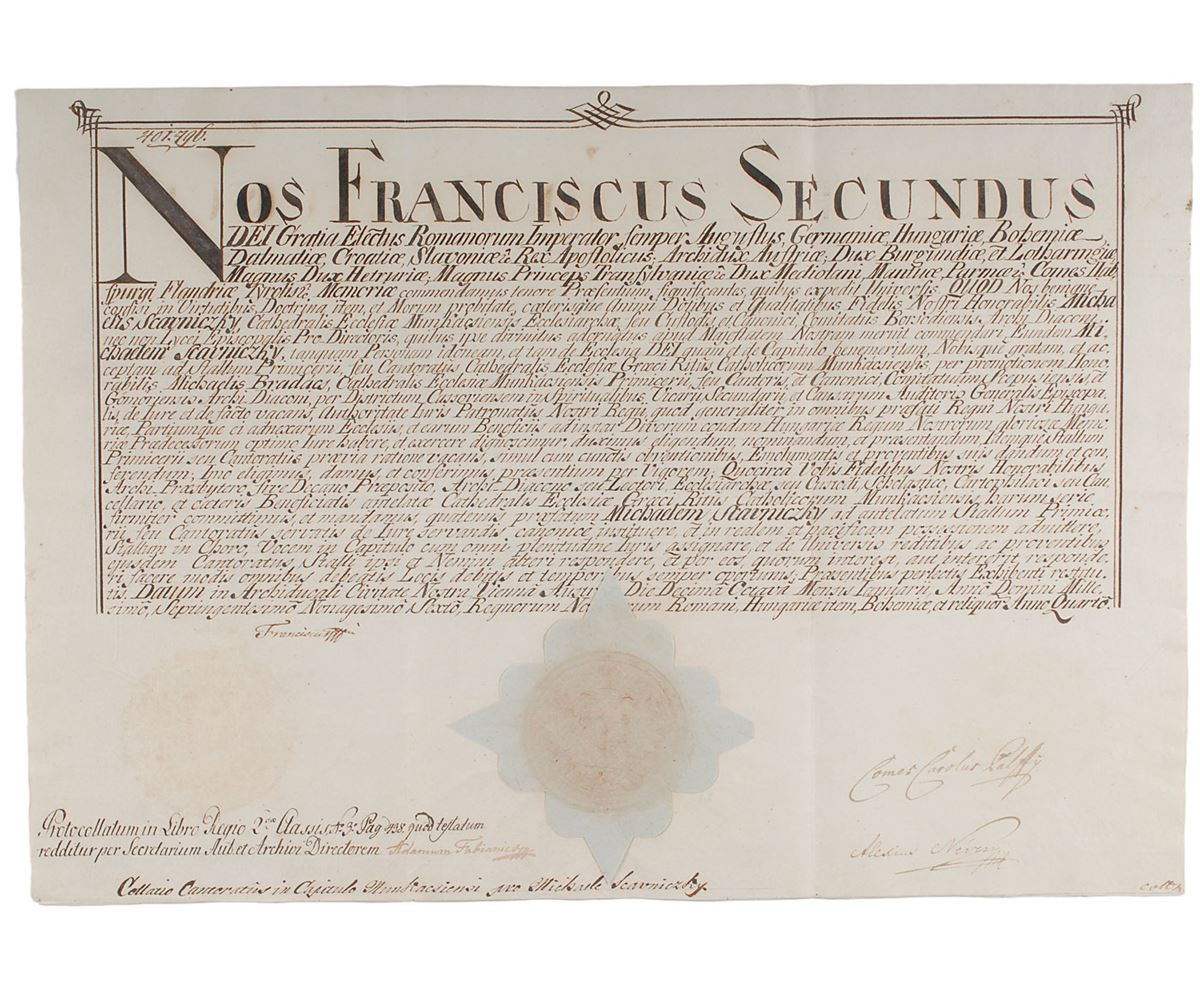 401.796.
NOS FRANCISCUS SECUNDUS
DEI Gratia Electus Romanorum Imperator, semper Augustus, Germaniæ, Hungariæ, Bohemiæ
Dalmatiæ, Croatiæ, Slavoniæ Rex Apostolicus, Archidux Austriæ, Dux Burgundiæ, et Lotharingiæ,
Magnus Dux Hetruriæ, Magnus Princeps Transylvaniæ Dux Mediolani, Mantuæ, Parmæ, Comes Hab
spurgi, Flandriæ, Tyrolis. Memoriæ commendamus tenore Præsentium significantes, quibus expedit Universis. QUOD Nos benigne
confisi in Virtutibus, Doctrina, item, et Morum probitate, cæterisque animi Dotibus et Qualitatibus, Fidelis Nostri Honorabilis Micha
elis Scavniczky, Cathedralis Ecclesiæ Munkacsiensis Ecclesiarchæ, seu Custodis, et Canonici, Comitatus Borsodiensis Archi Diaconi,
nec non Lycei Episcopalis Pro Directoris, quibus ipse divinitus adornatus apud Majestatem Nostram meruit commendari, Eundem Mi
chaelem Scavniczky, tanquam Personam idoneam, et tam de Ecclesia DEI, quam et de Capitulo benemeritum, Nobisque gratam, et ac
ceptam ad Stallum Primicerii, seu Cantoratus Cathedralis Ecclesiæ Græci Ritus, Catholicorum Munkacsiensis, per promotionem Hono
rabilis Michaelis Bradacs, Cathedralis Ecclesiæ Munkacsiensis Primicerii, seu Cantoris, et Canonici, Comitatuum Scepusiensis, et
Gömöriensis Archi Diaconi, per Districtum Cassoviensem in Spiritualibus Vicarii Secundarii et Causarum Auditoris Generalis Episcopa
lis, de Iure et de facto vacans, Authoritate Iuris Patronatus Nostri Regii, quod generaliter in omnibus præfati Regni Nostri Hunga
riæ, Partiumque ei adnexarum Ecclesiis, et earum Beneficiis ad instar Divorum condam Hungariæ Regum Nostrorum gloriosæ Memo
riæ Prædecessorum optimo Iure habere, et exercere dignoscimur, duximus eligendum, nominandum, et præsentandum, Idemque Stallum
Primicerii, seu Cantoratus, præmissa ratione vacans, simul cum cunctis obventionibus, Emolumentis et proventibus suis dandum et con
ferendum, Imo eligimus, damus, et conferimus, præsentium per Vigorem. Quocirca Vobis Fidelibus Nostris Honorabilibus
Archi Presbytero, sive Decano Præposito, Archi Diacono, seu Lectori, Ecclesiarchæ, seu Custodi, Scholastico, Cartophilaci seu Can
cellario, et cæteris Beneficiatis præfatæ Cathedralis Ecclesiæ Græci Ritus Catholicorum Munkacsiensis, harum serie
firmiter committimus, et mandamus, quatenus præfatum Michaelem Scavniczky ad antelatum Stallum Primice
rii, seu Cantoratus servatis de Iure servandis, canonice instituere, et in realem et pacificam possessionem admittere,
Stallum in Choro, Vocem in Capitulo cum omni plenitudine Iuris assignare, et de Universis reditibus ac proventibus
ejusdem Cantoratus, Stalli ipsi et Nemini alteri respondere, et per eos, quorum interest, aut intererit, responde
ri facere modis omnibus debeatis Locis debitis et temporibus semper oportunis. Præsentibus perlectis Exhibenti restitu
tis. Datum in Archiducali Civitate Nostra Vienna Austriæ Die Decima Octava Mensis Ianuarii, Anno Domini Mille
simo, Septingentesimo Nonagesimo Sexto, Regnorum Nostrorum Romani, Hungariæ item, Bohemiæ, et reliquor Anno Quarto.
Franciscus
Comes Carolus Palffy
Protocollatum in Libro Regio 2dæ Classis, N. 3. Pag 438. quod testatum
redditur per Secretarium Aul. et Archivi Directorem Adamum Fabianics
Alexius
Collatio Cantoratus in Capitulo Munkacsiensi pro Michaele Scavniczky.